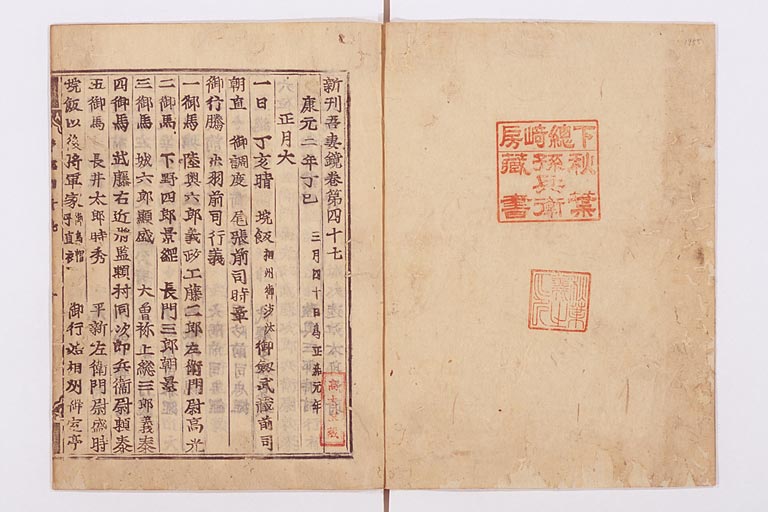 下總﨑房
秋葉
孫兵衛
藏書
新刊吾妻鏡卷第四十七
康元二年丁巳 三月四十日爲正嘉元年
正月大
一日丁亥晴 垸飯 相州御沙汰 御劔武藏前司
朝直 御調度 尾張前司時章
御行騰前出羽前司行義
一御馬 陸奧六郎義政 工藤二郎左衛門尉高光
二御馬 下野四郎景經 長門三郎朝景
三御馬 城六郎顯盛 大曾祢上総三郎義泰
四御馬 武藤右近將監頼村 同次郎兵衛尉頼泰
五御馬 長井太郎時秀 平新左衛門尉盛時
垸飯以後將軍家 直衣 御行始相州